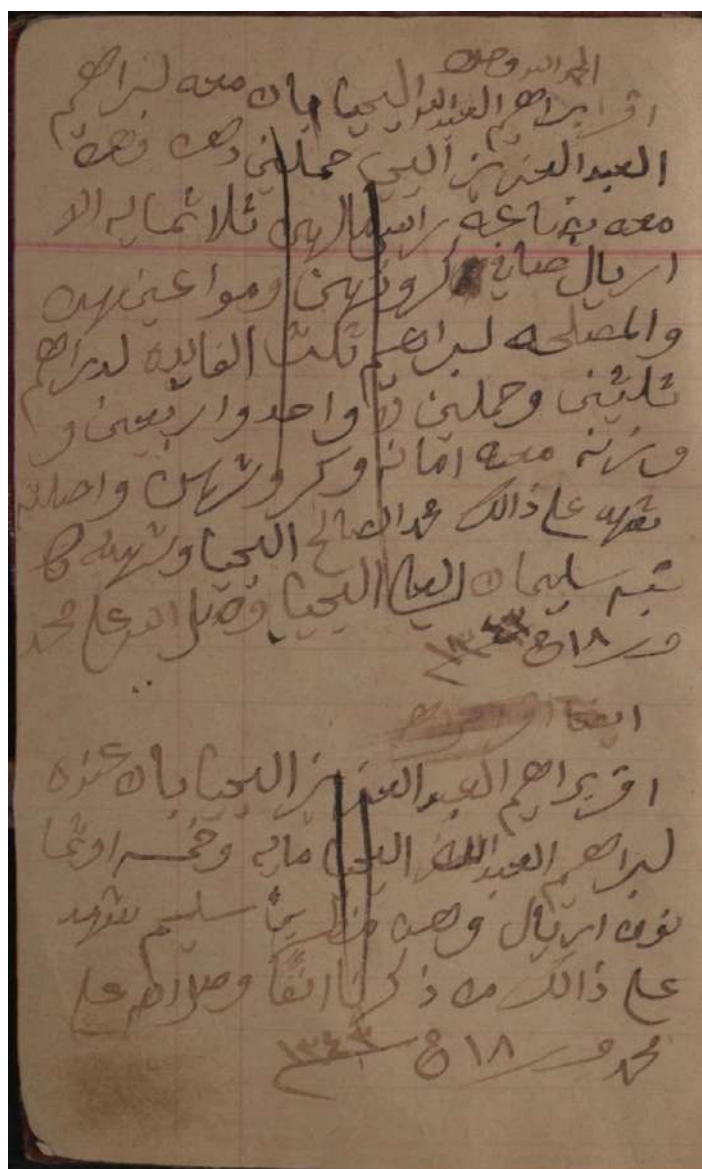 الحمد لله وحده
اقر ابراهيم العبدالله اليحيا بان معه لبراهيم
العبدالعزيز اليحيى حملين دهن
معه بضاعة راسمالهن ثلاثمايه الا
اريال صافي كروتهن ومواعينهن
والمصلحه لبراهيم ثلث الفايده لبراهيم
ثلثين وحملين واحد واربعين و
وزنه معه امانه وكروتهن واصلته
شهد على ذالك محمد الصالح اليحيا وشهد به كا
تبه سليمان اليحيا وصلى الله على محمد
١٨ ج ١٣٤٣
ايضا
اقر براهيم العبدالعزيز اليحيا بان عنده
لبراهيم العبدالله اليحيا مايه وخمسه اوثما
نون اريال وهن سليم شهد
على ذالك من ذكرنا انفا وصلى الله على
محمد ١٨ ج ١٣٤٣